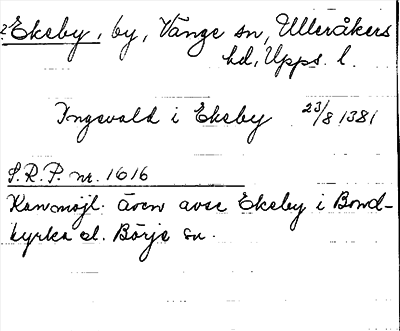 2. Ekeby, by, Vänge sn, Ulleråkers
hd, Upps. l.
Ingevald i Ekeby 23/8 1381
S.R.P. nr. 1616
Kan möjl. även avse Ekeby i Bond-
kyrka el. Börje sn.